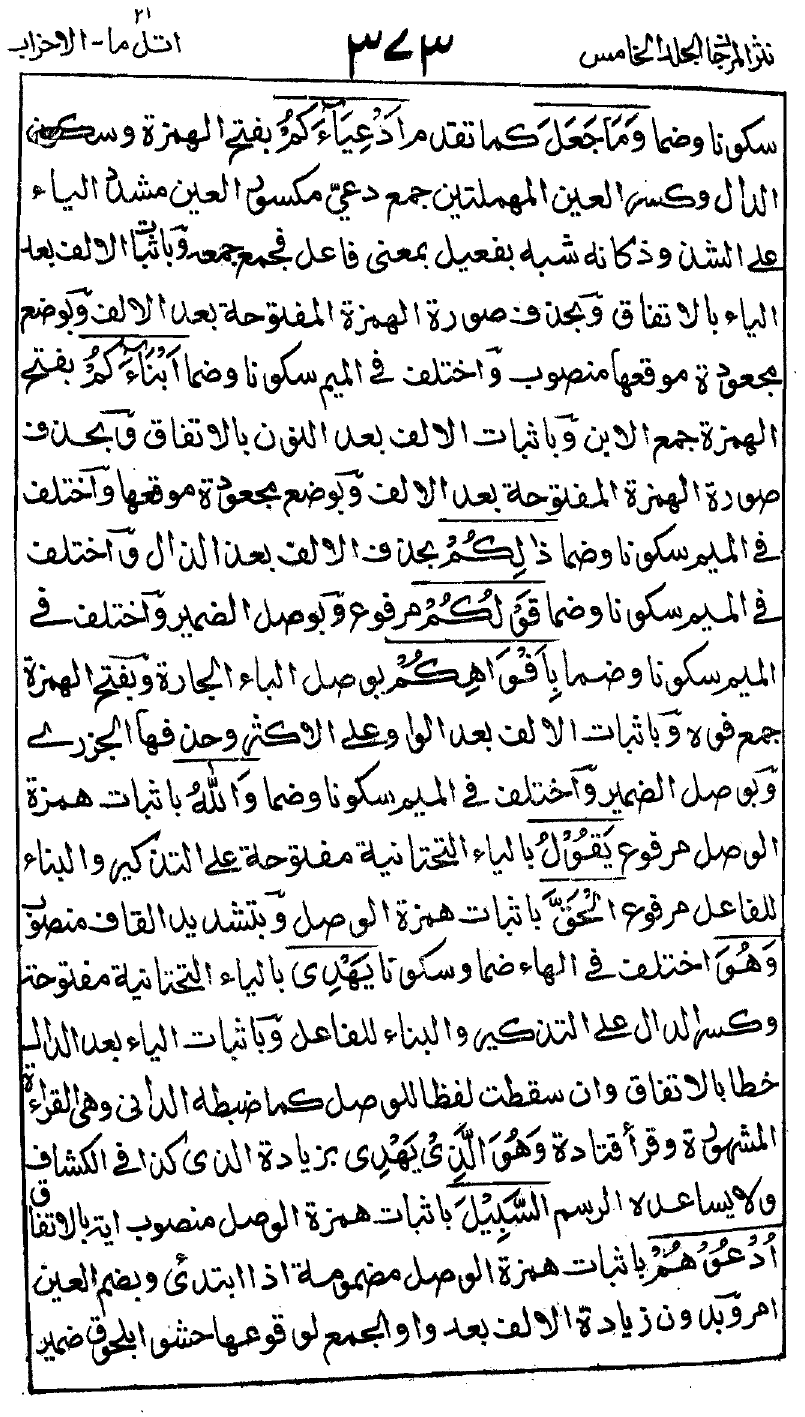 نثر المرجان المجلد الخامس ٣٧٣ اتل ما - الاحزاب ٢١
سكونا وضما وَمَا جَعَلَ كما تقدم أَدْعِيَآءَكُمْ بفتح الهمزة وسكون
الدال وكسر العين المهملتين جمع دعيّ مكسور العين مشدد الياء
على الشذوذ كانه شبه بفعيل بمعنى فاعل فجمع جمعه وباثبات الالف بعد
الياء بالاتفاق وبحذف صورة الهمزة المفتوحة بعد الالف وبوضع
مجعودة موقعها منصوب واختلف فى الميم سكونا وضما اَبْنَآءَكُمْ بفتح
الهمزة جمع الابن وباثبات الالف بعد النون بالاتفاق وبحذف
صورة الهمزة المفتوحة بعد الالف وبوضع مجعودة موقعها واختلف
فى الميم سكونا وضما ذٰلِكُمْ بحذف الالف بعد الذال واختلف
فى الميم سكونا وضما قَوْلُكُمْ مرفوع وبوصل الضمير واختلف فى
الميم سكونا وضما بِاَفْوَاهِكُمْ بوصل الباء الجارة وبفتح الهمزة
جمع فوه وباثبات الالف بعد الواو على الاكثر وحذفها الجزرى
وبوصل الضمير واختلف فى الميم سكونا وضما وَاللّٰهُ باثبات همزة
الوصل مرفوع يَقُوْلُ بالياء التحتانية مفتوحة على التذكير والبناء
للفاعل مرفوع الْحَقَّ باثبات همزة الوصل وبتشديد القاف منصوب
وَهُوَ اختلف فى الهاء ضما وسكونا يَهْدِى بالياء التحتانية مفتوحة
وكسر الدال على التذكير والبناء للفاعل وباثبات الياء بعد الدال
خطا بالاتفاق وان سقطت لفظا للوصل كما ضبطه الدانى وهى القراءة
المشهورة وقرأ قتادة وَهُوَ الَّذِىْ يَهْدِى بزيادة الذى كذا فى الكشاف
ولا يساعده الرسم السَّبِيْلَ باثبات همزة الوصل منصوب اية بالاتفاق
اُدْعُوْهُمْ باثبات همزة الوصل مضمومة اذا ابتدئ وبضم العين
امر وبدون زيادة الالف بعد واو الجمع لوقوعها حشوا بلحوق ضمير